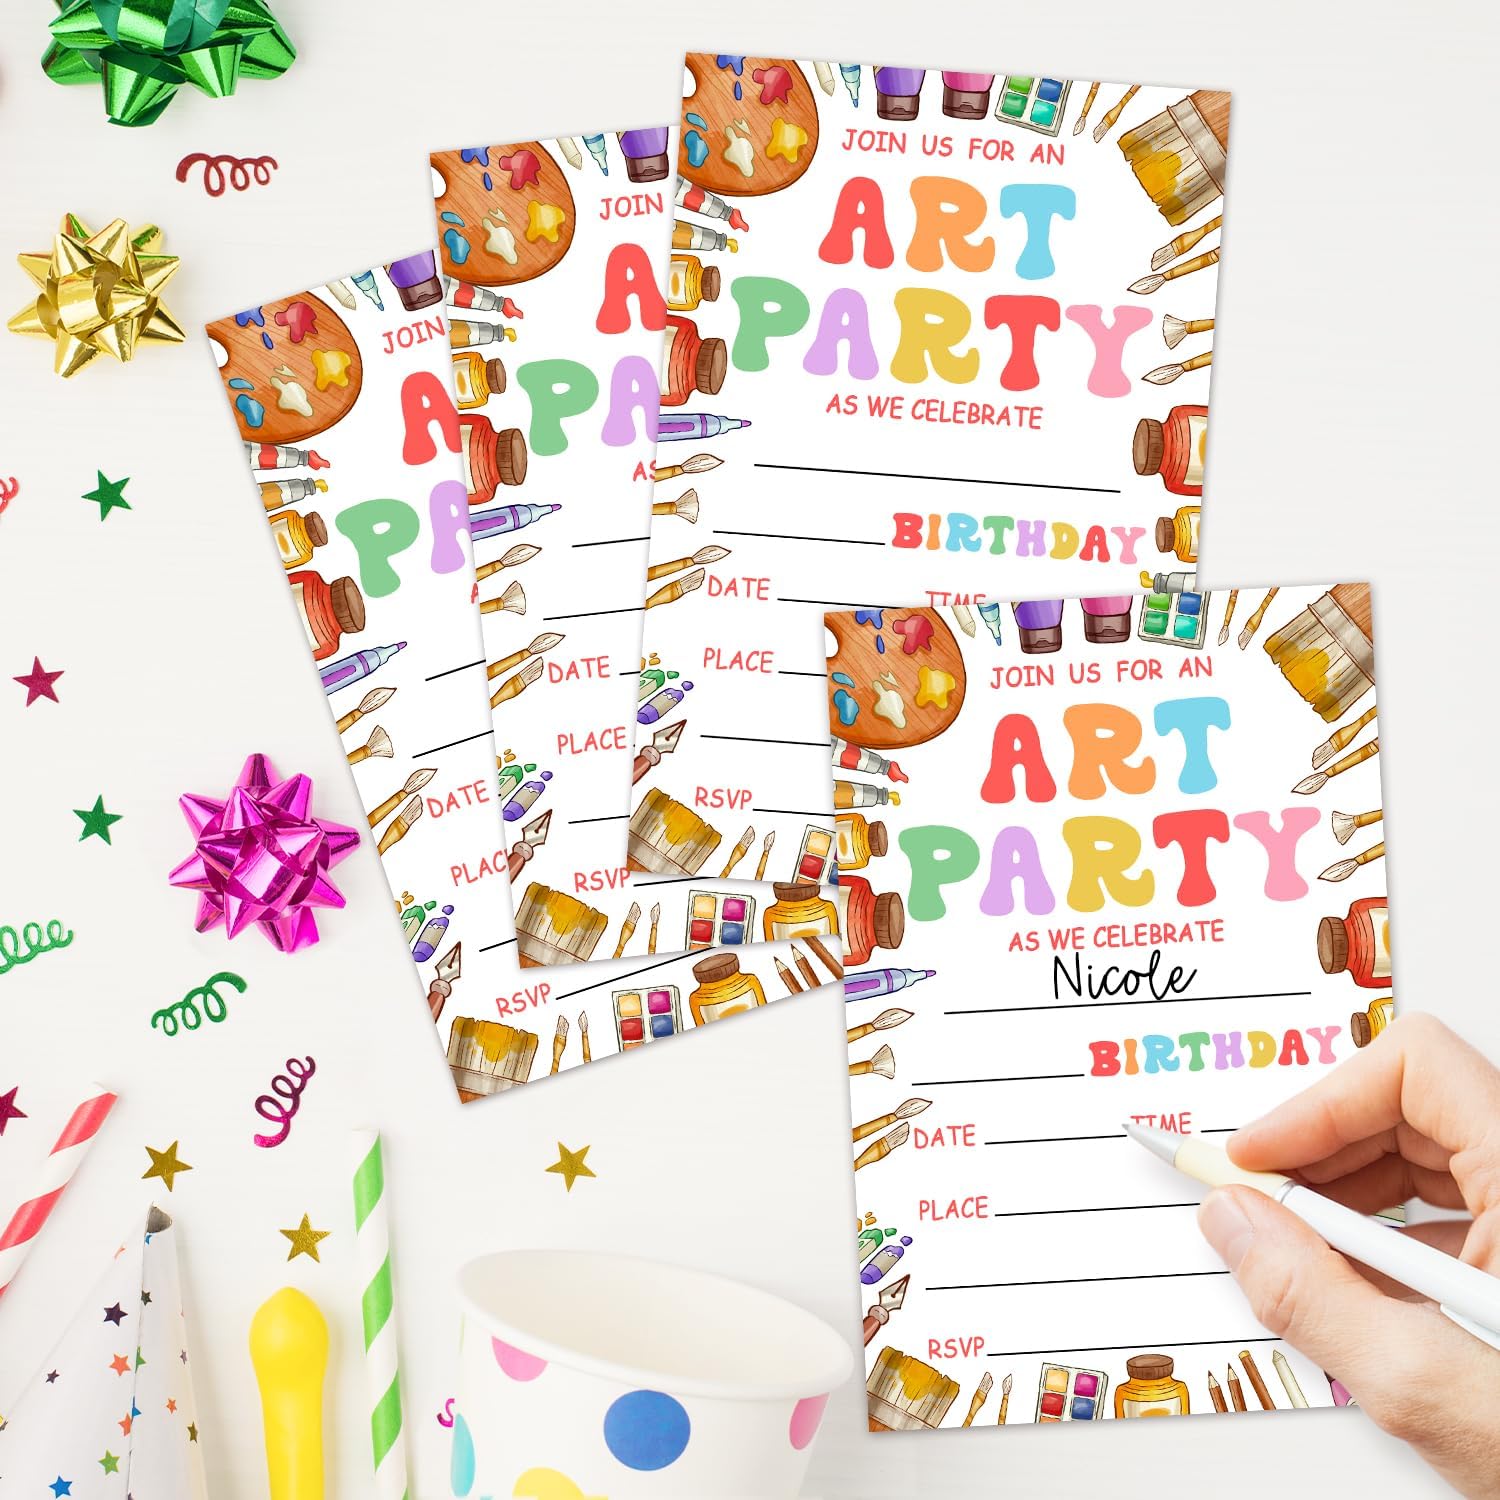 JOIN US FOR AN
ART
PARTY
AS WE CELEBRATE
BIRTHDAY
DATE TIME
PLACE
RSVP
JOIN
A
PA
AS
DATE
PLACE
RSVP
JOIN
A
PA
A
DATE
PLAC
RSVP
JOIN US FOR AN
ART
PARTY
AS WE CELEBRATE
Nicole
BIRTHDAY
DATE TIME
PLACE
RSVP